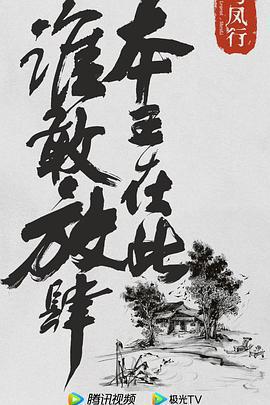 凤行
本王在此
谁敢放肆
腾讯视频 极光TV